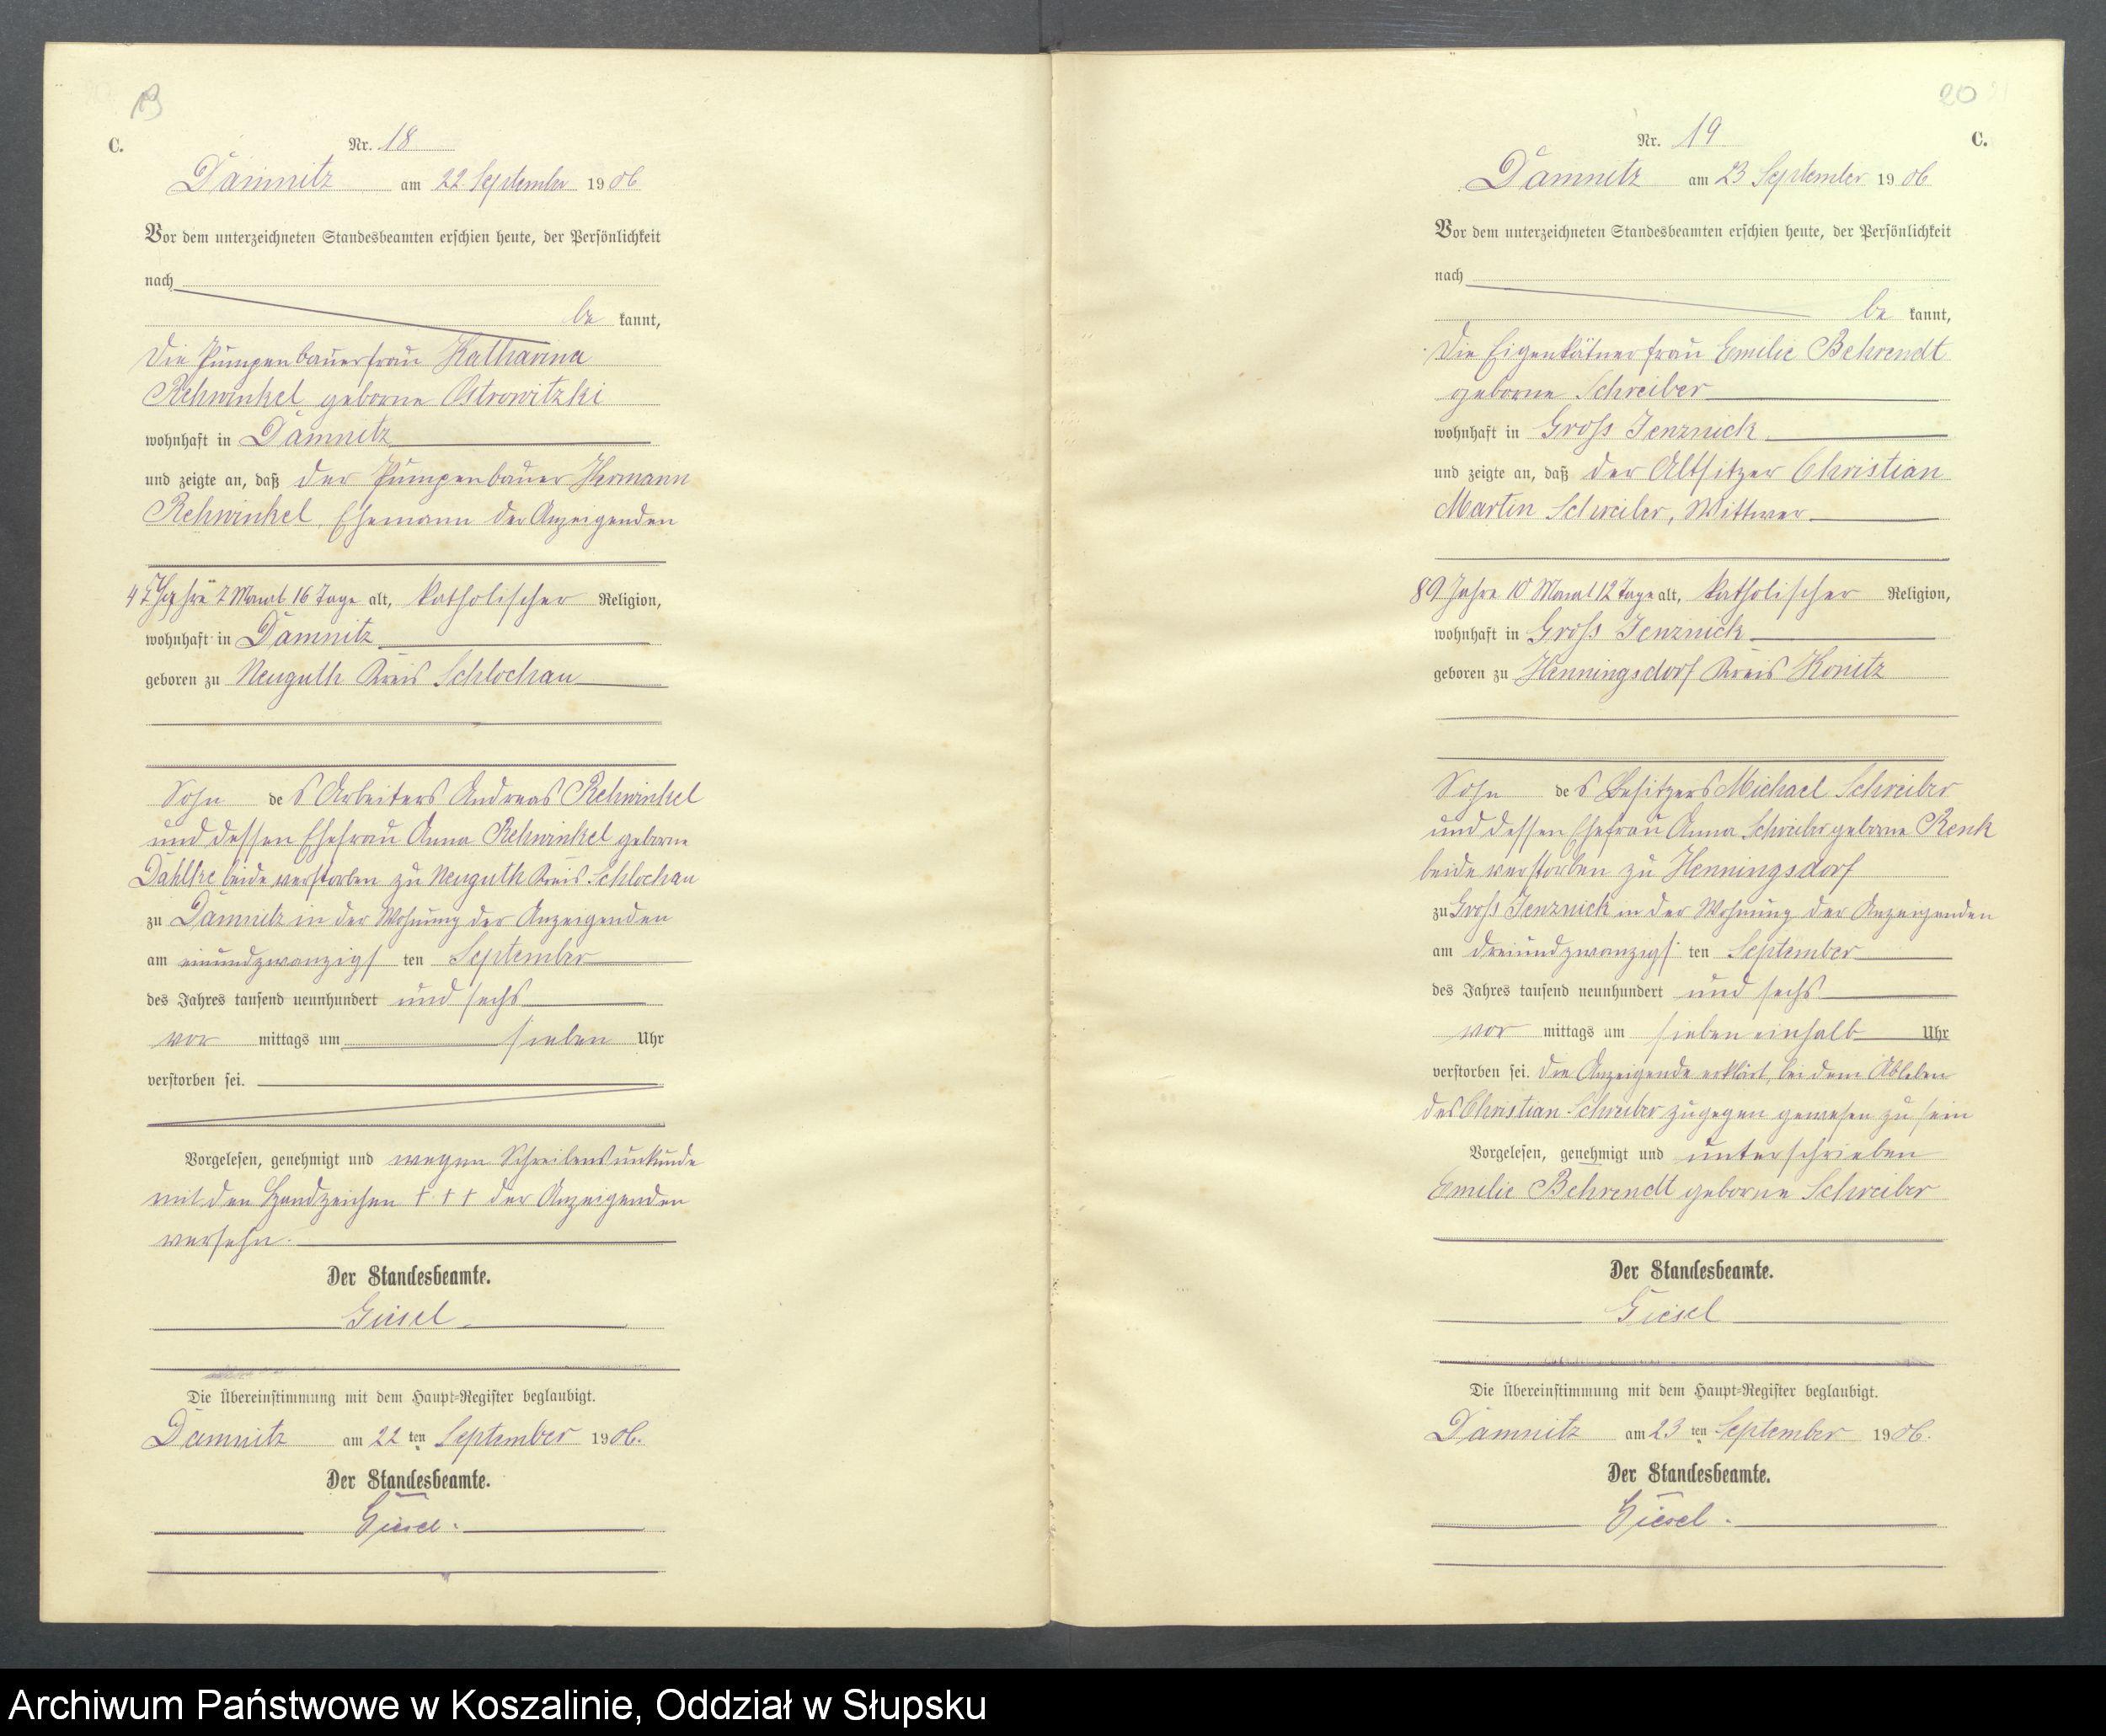 C.
Nr. 18
Damnitz am 22. September 1906
Vor dem unterzeichneten Standesbeamten erschien heute, der Persönlichkeit
nach
be kannt,
die Pumpenbauerfrau Katharina
Rehwinkel geborne Ostrowitzki
wohnhaft in Damnitz
und zeigte an, daß der Pumpenbauer Hermann
Rehwinkel, Ehemann der Anzeigenden
Jahre 2 Monat 16 Tage alt, katholischer Religion,
wohnhaft in Damnitz
geboren zu Neuguth Kreis Schlochau
Sohn des Arbeiters Andreas Rehwinkel
und dessen Ehefrau Anna Rehwinkel geborne
Dahlke beide verstorben zu Neuguth Kreis Schlochau
zu Damnitz in der Wohnung der Anzeigenden
am einundzwanzigsten September
des Jahres tausend neunhundert und sechs
vor mittags um sieben Uhr
verstorben sei.
Vorgelesen, genehmigt und wegen Schreibensunkunde
mit den Handzeichen + + + der Anzeigenden
versehn.
Der Standesbeamte.
Giesel
Die Übereinstimmung mit dem Haupt-Register beglaubigt.
Damnitz am 22 ten September 1906.
Der Standesbeamte.
Giesel.
20
Nr. 19
C.
Damnitz am 23 September 1906
Vor dem unterzeichneten Standesbeamten erschien heute, der Persönlichkeit
nach
be kannt,
die Eigenkätnerfrau Emilie Behrendt
geborne Schreiber
wohnhaft in Gross Jenznick
und zeigte an, daß der Altsitzer Christian
Martin Schreiber, Wittwer
89 Jahre 10 Monat 12 Tage alt, katholischer Religion,
wohnhaft in Gross Jenznick
geboren zu Henningsdorf Kreis Konitz
Sohn des Besitzers Michael Schreiber
und dessen Ehefrau Anna Schreiber geborne Renk
beide verstorben zu Henningsdorf
zu Gross Jenznick in der Wohnung der Anzeigenden
am dreiundzwanzigsten September
des Jahres tausend neunhundert und sechs
vor mittags um sieben einhalb Uhr
verstorben sei. Die Anzeigende erklärt, bei dem Ableben
des Christian Schreiber zugegen gewesen zu sein
Vorgelesen, genehmigt und unterschrieben
Emilie Behrendt geborne Schreiber
Der Standesbeamte.
Giesel
Die Übereinstimmung mit dem Haupt-Register beglaubigt.
Damnitz am 23 ten September 1906.
Der Standesbeamte.
Giesel.
Archiwum Państwowe w Koszalinie, Oddział w Słupsku